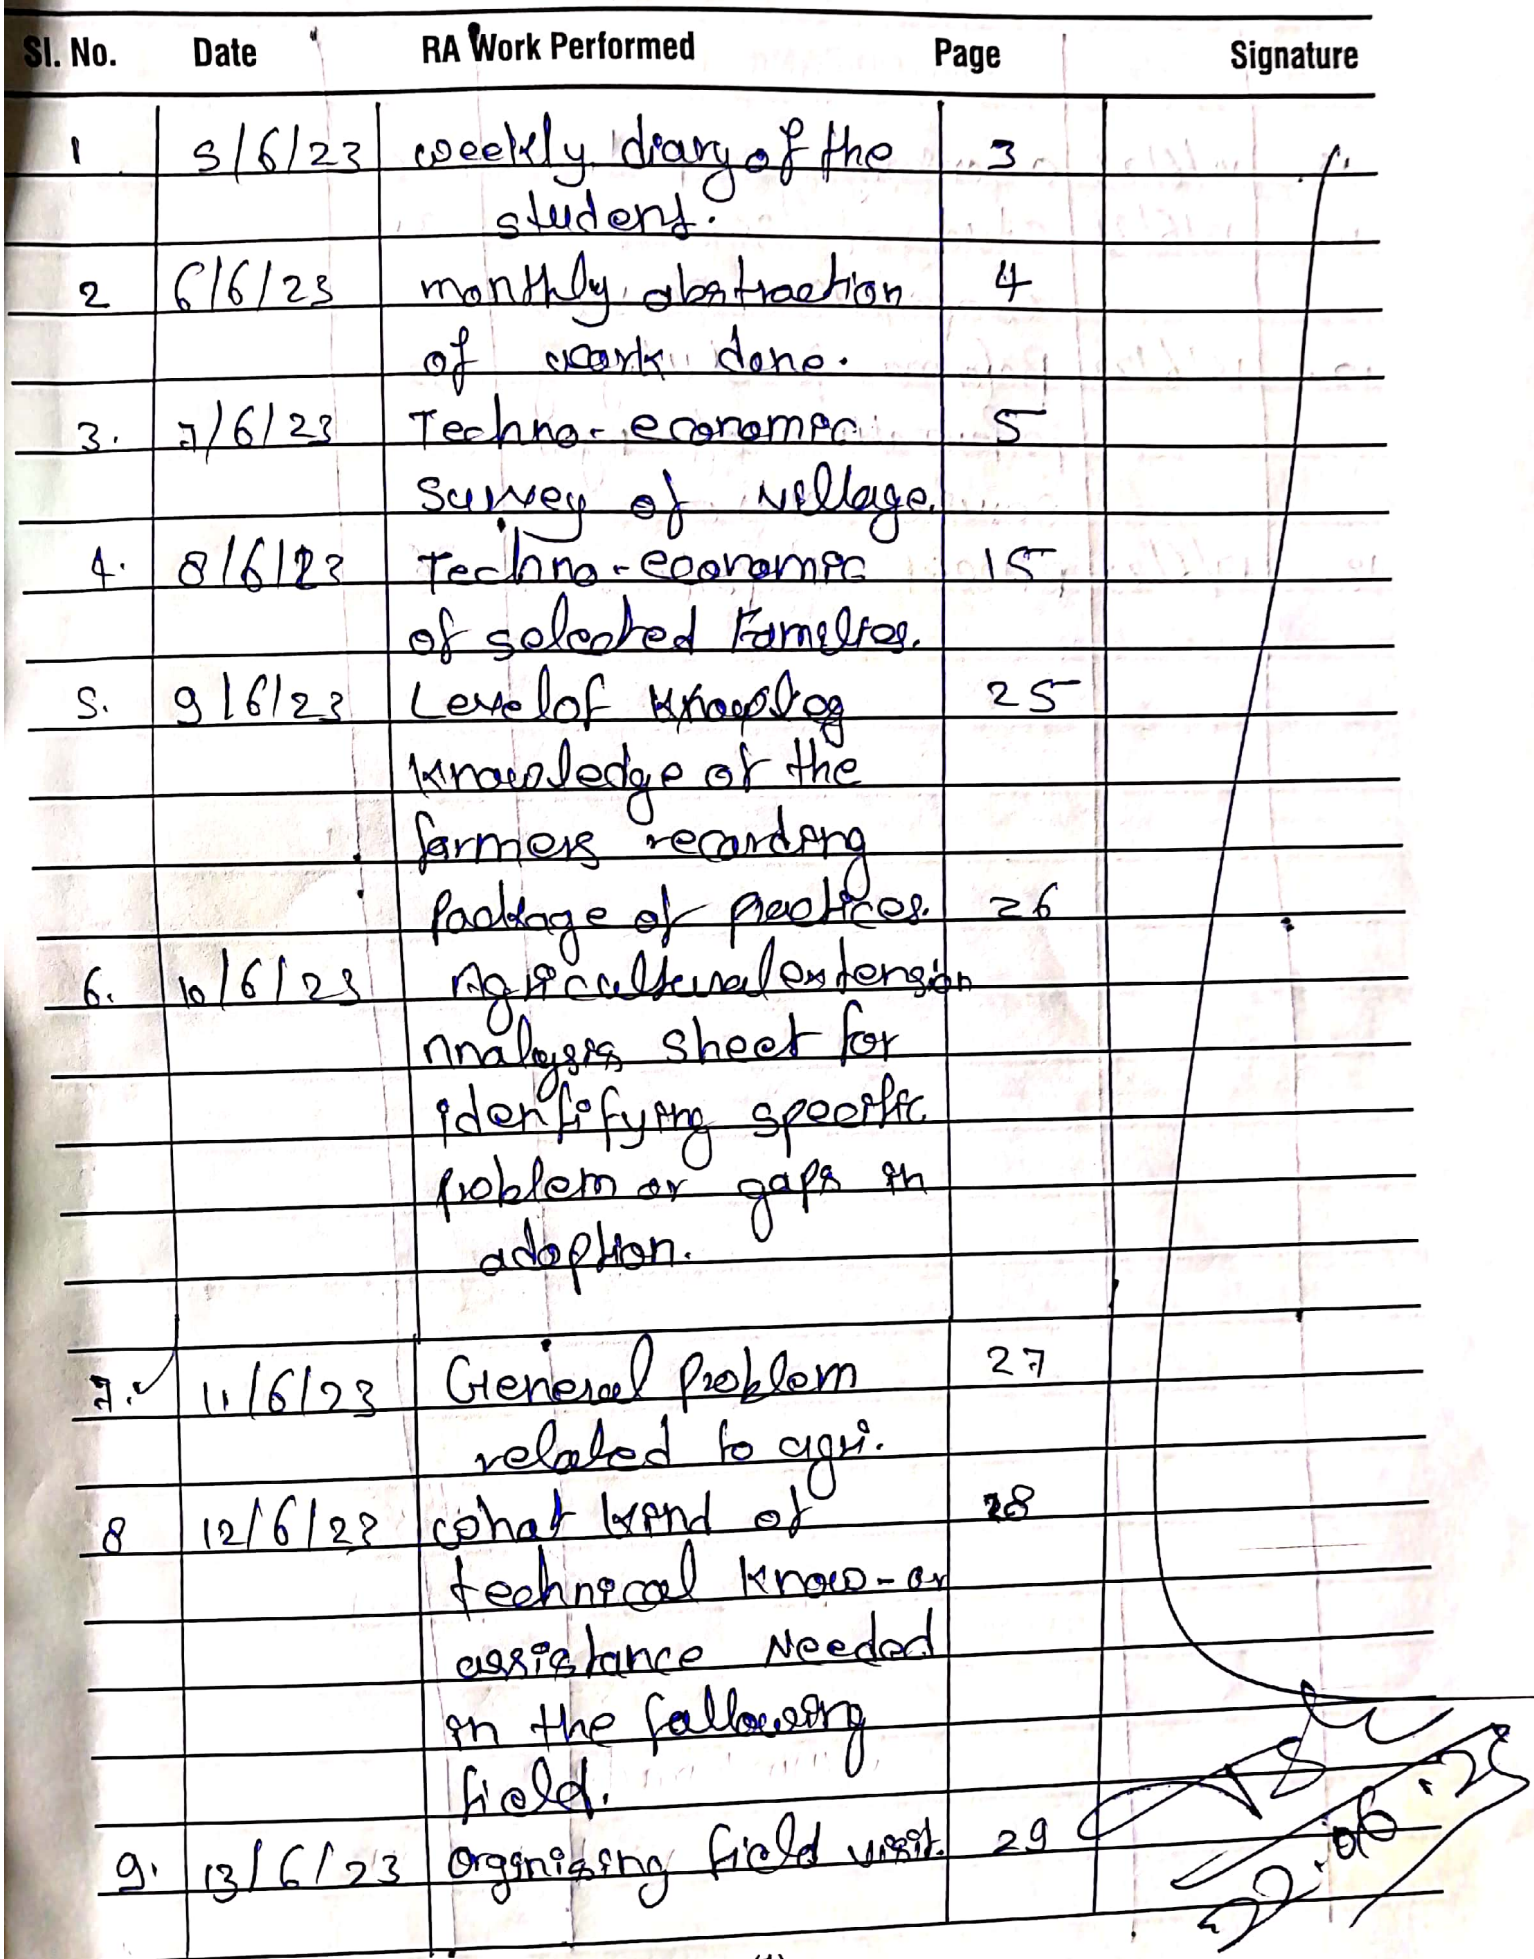 Sl. No. Date RA Work Performed Page Signature
1 5/6/23 weekly diary of the 3
student.
2 6/6/23 monthly abstraction 4
of work done.
3. 7/6/23 Techno-economic 5
Survey of village.
4. 8/6/23 Techno-economic 15
of selected Families.
5. 9/6/23 Level of 25
knowledge of the
farmers recording
Package of practices. 26
6. 10/6/23 Agricultural extension
Analysis sheet for
identifying specific
problem or gaps in
adoption.
7. 11/6/23 General problem 27
related to agri.
8 12/6/23 what kind of 28
technical know-or
assistance Needed
in the following
field.
9. 13/6/23 Organising field visit. 29
(1)